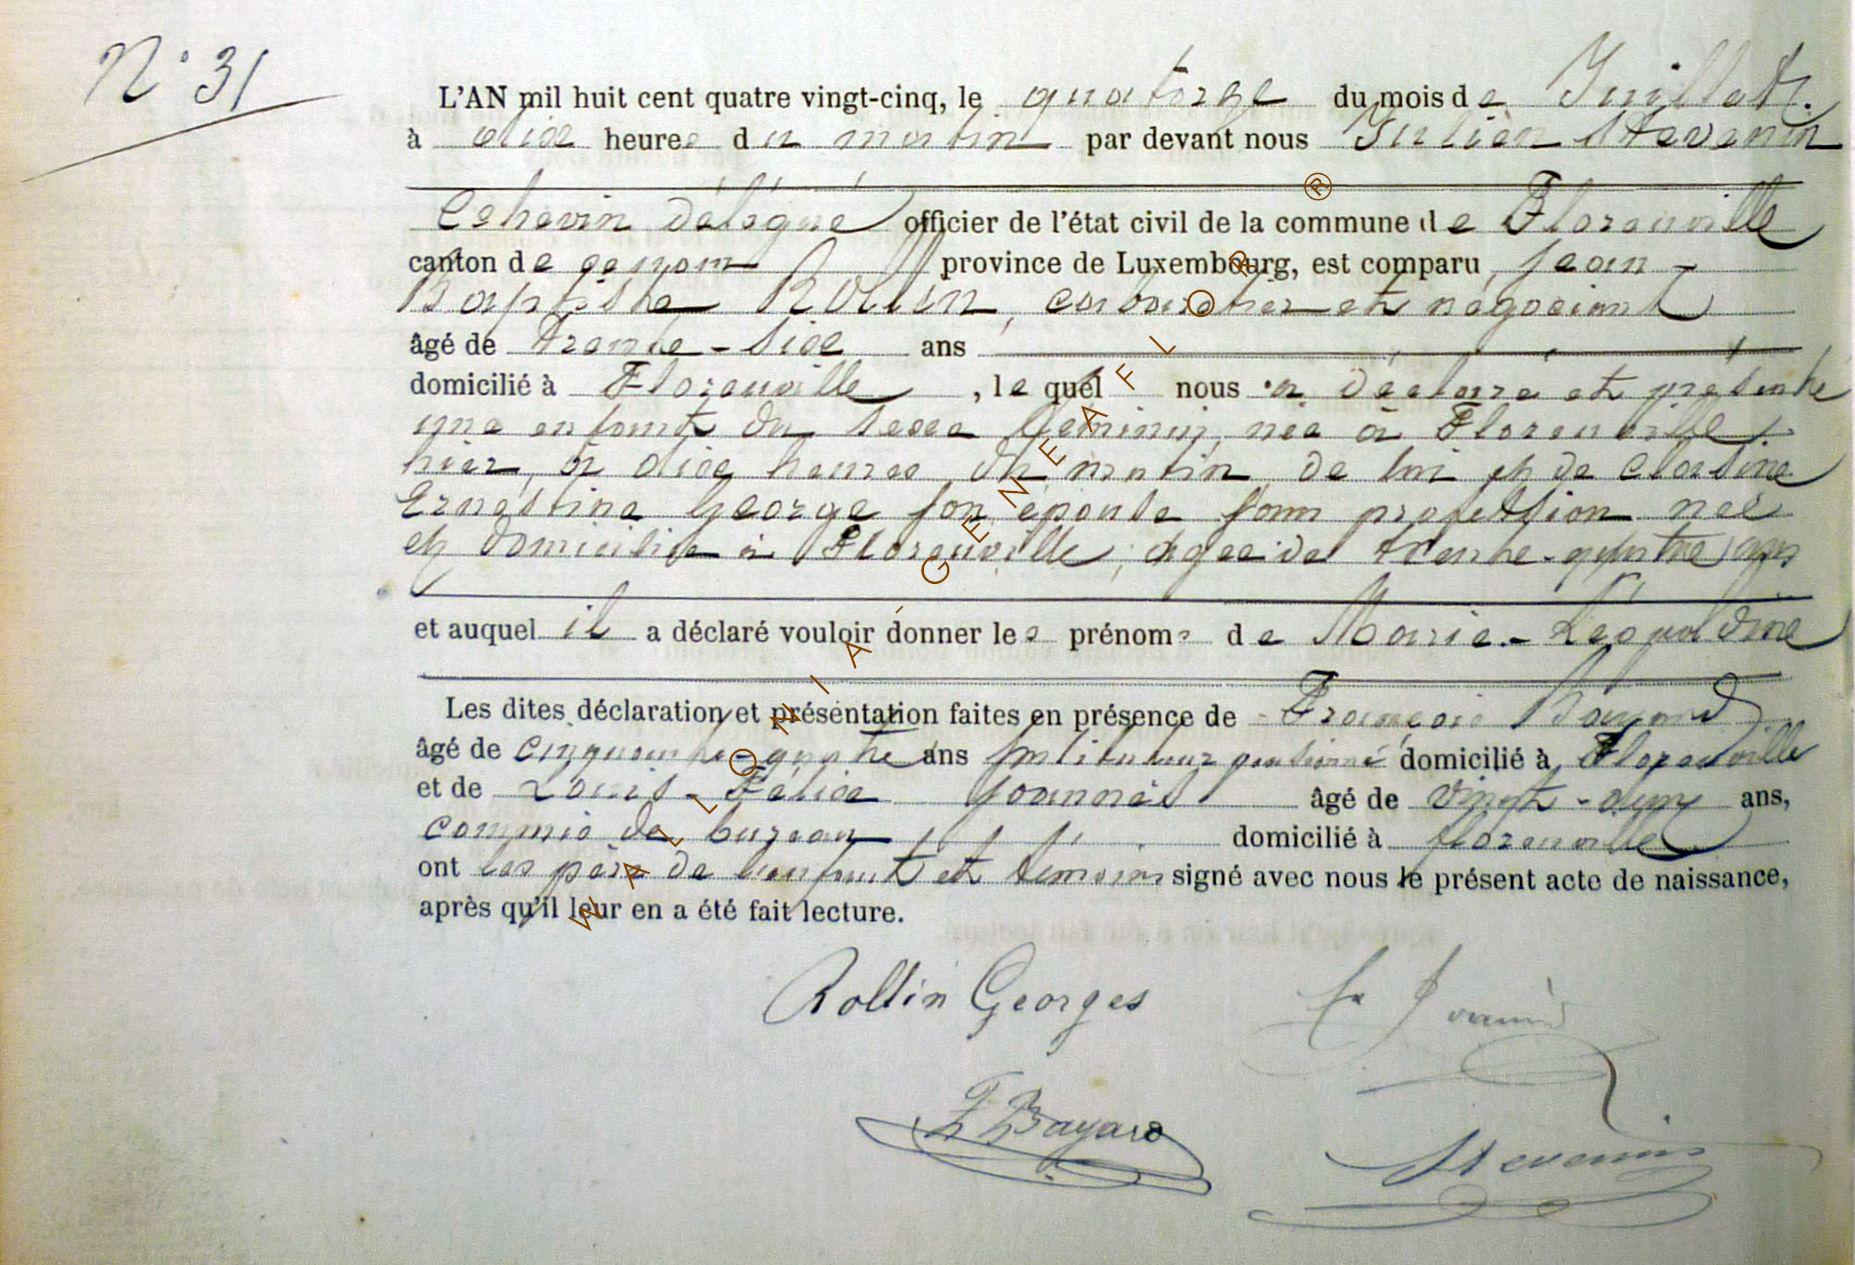 N° 31
L'AN mil huit cent quatre vingt-cinq, le quatorze du mois de Juillet.
à dix heures du matin par devant nous Julien Stevenin
Echevin délégué officier de l'état civil de la commune de Florenville
canton de province de Luxembourg, est comparu Jean-
Baptiste Rollin, cabaretier et négociant
âgé de trente-six ans
domicilié à Florenville, le quel nous a déclaré et présenté
une enfant du sexe féminin, née à Florenville,
hier, à dix heures du matin de lui et de
Ernestine George son épouse sans profession née
et domiciliée à Florenville, agée de trente-quatre ans
et auquel il a déclaré vouloir donner les prénoms de Marie-Léopoldine
Les dites déclaration et présentation faites en présence de François Bayard
âgé de cinquante-quatre ans instituteur pensionné domicilié à Florenville
et de Louis-Félix Joannès âgé de vingt-deux ans,
commis de bureau domicilié à florenville
ont les père de l'enfant et témoins signé avec nous le présent acte de naissance,
après qu'il leur en a été fait lecture.
Rollin Georges
Joannès
F Bayard
Stevenin
WALLONIA-GENEAFLOR ®